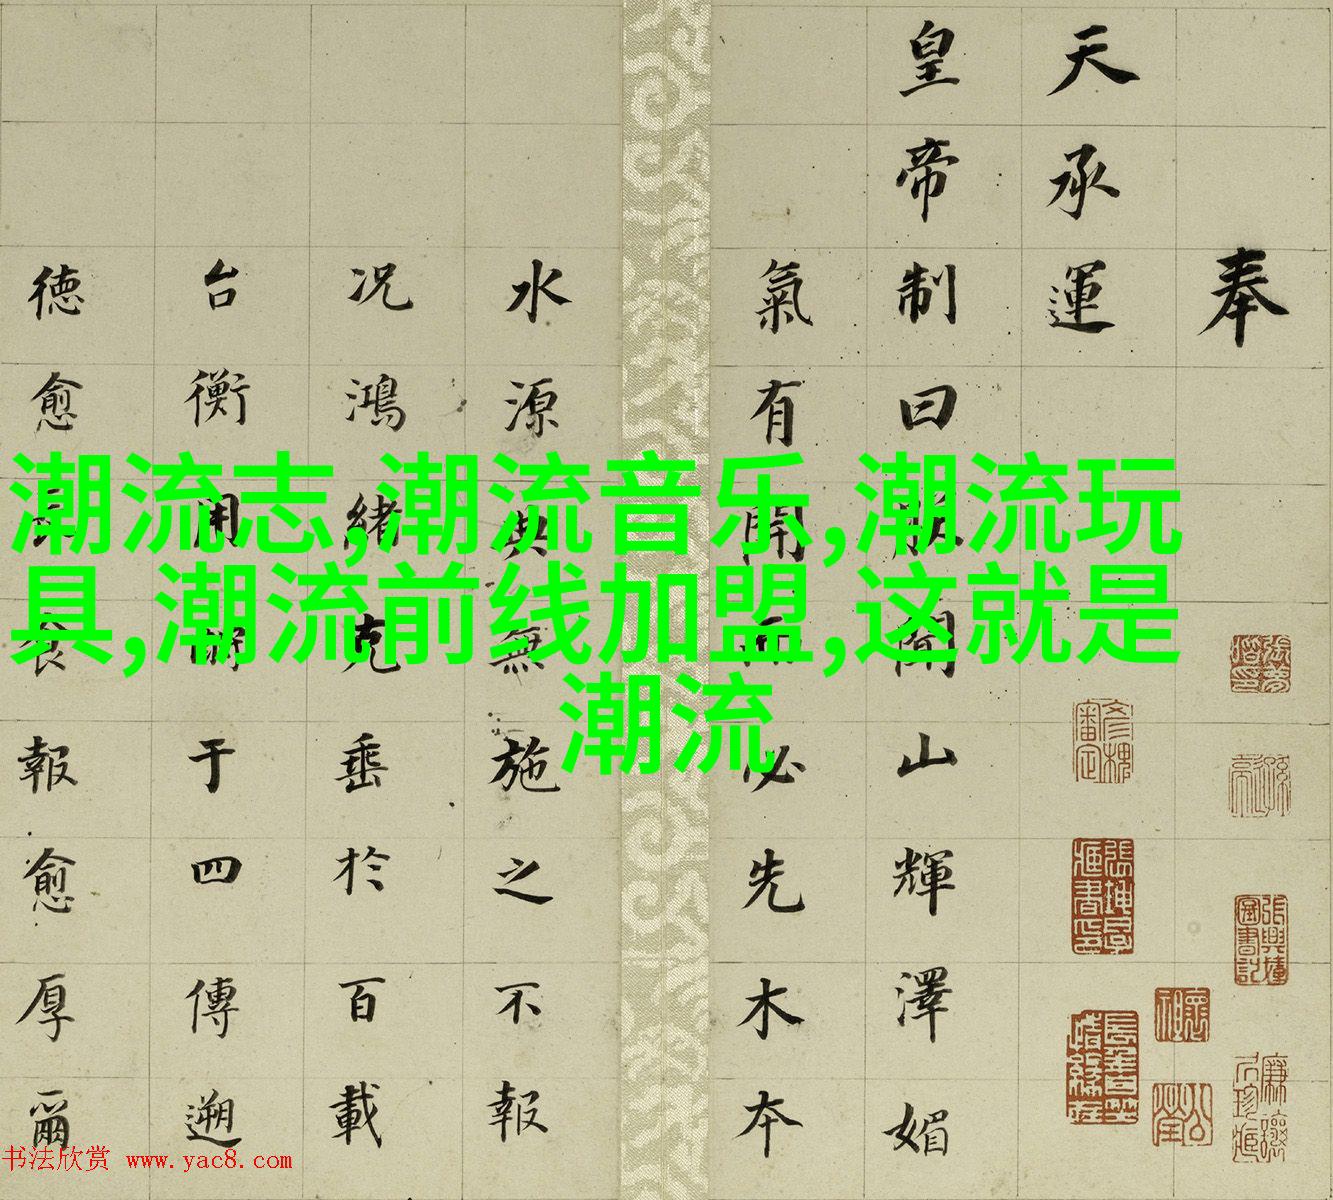 奉
天承運
皇帝制曰朕聞山輝澤媚
氣有開而必先木本
水源典無施之不報
况鴻緒克垂於百載
台衡用于四傳遡
德愈食報愈厚爾
潮流志,潮流音乐,潮流玩
具,潮流前线加盟,这就是
潮流
书法欣赏 www.yac8.com